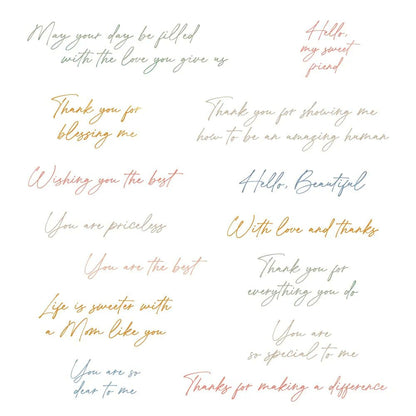 May your day be filled
with the love you give us
Hello,
my sweet
friend
Thank you for
blessing me
Thank you for showing me
how to be an amazing human
Wishing you the best
Hello, Beautiful
You are priceless
With love and thanks
You are the best
Thank you for
everything you do
Life is sweeter with
a Mom like you
You are
so special to me
You are so
dear to me
Thanks for making a difference